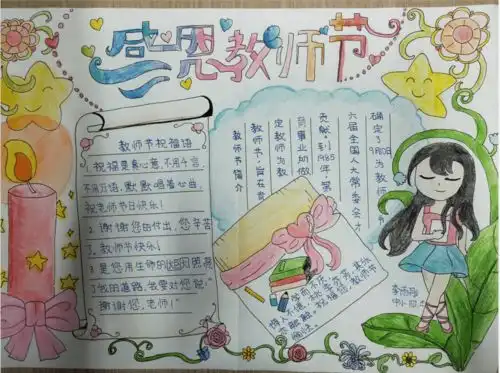 感恩教师节
教师节祝福语
1. 祝福是真心意,不用千言,
不用万语,默默唱着心曲,
祝老师节日快乐!
2. 谢谢您的付出,您辛苦
了,教师节快乐!
3 是您用生命的火焰照亮
了我的道路,我要对您说:"
谢谢您,老师!"
教师节简介
教师节,旨在肯
定教师为教
育事业的做
贡献。到1985年,第
六届全国人大常委会才
确定9月10日为教师
学而不厌,
诲人不倦,桃李芬芳,其乐
亦融融。祝福您,教师节
愉快。